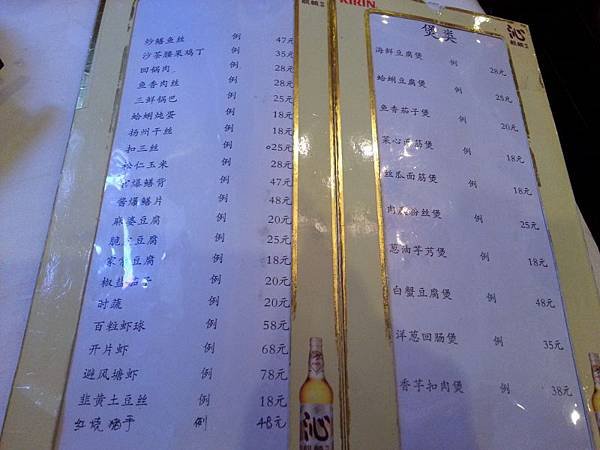 炒鳝鱼丝 例 47元
沙茶腰果鸡丁 例 35元
回锅肉 例 28元
鱼香肉丝 例 28元
三鲜锅巴 例 25元
蛤蜊炖蛋 例 18元
扬州干丝 例 18元
扣三丝 例 25元
松仁玉米 例 28元
爆鳝背 例 47元
酱爆鳝片 例 48元
麻婆豆腐 例 20元
豆腐 例 25元
家常豆腐 例 18元
椒盐茄子 例 20元
时蔬 例 20元
百粒虾球 例 58元
开片虾 例 68元
避风塘虾 例 78元
韭黄土豆丝 例 18元
红烧 例 48元
沁
KIRIN
煲类
沁
麒麟
海鲜豆腐煲 例 28元
蛤蜊豆腐煲 例 25元
鱼香茄子煲 例 20元
菜心面筋煲 例 18元
丝瓜面筋煲 例 18元
肉 粉丝煲 例 25元
葱油芋艿煲 例 18元
白蟹豆腐煲 例 48元
洋葱回肠煲 例 35元
香芋扣肉煲 例 38元
沁